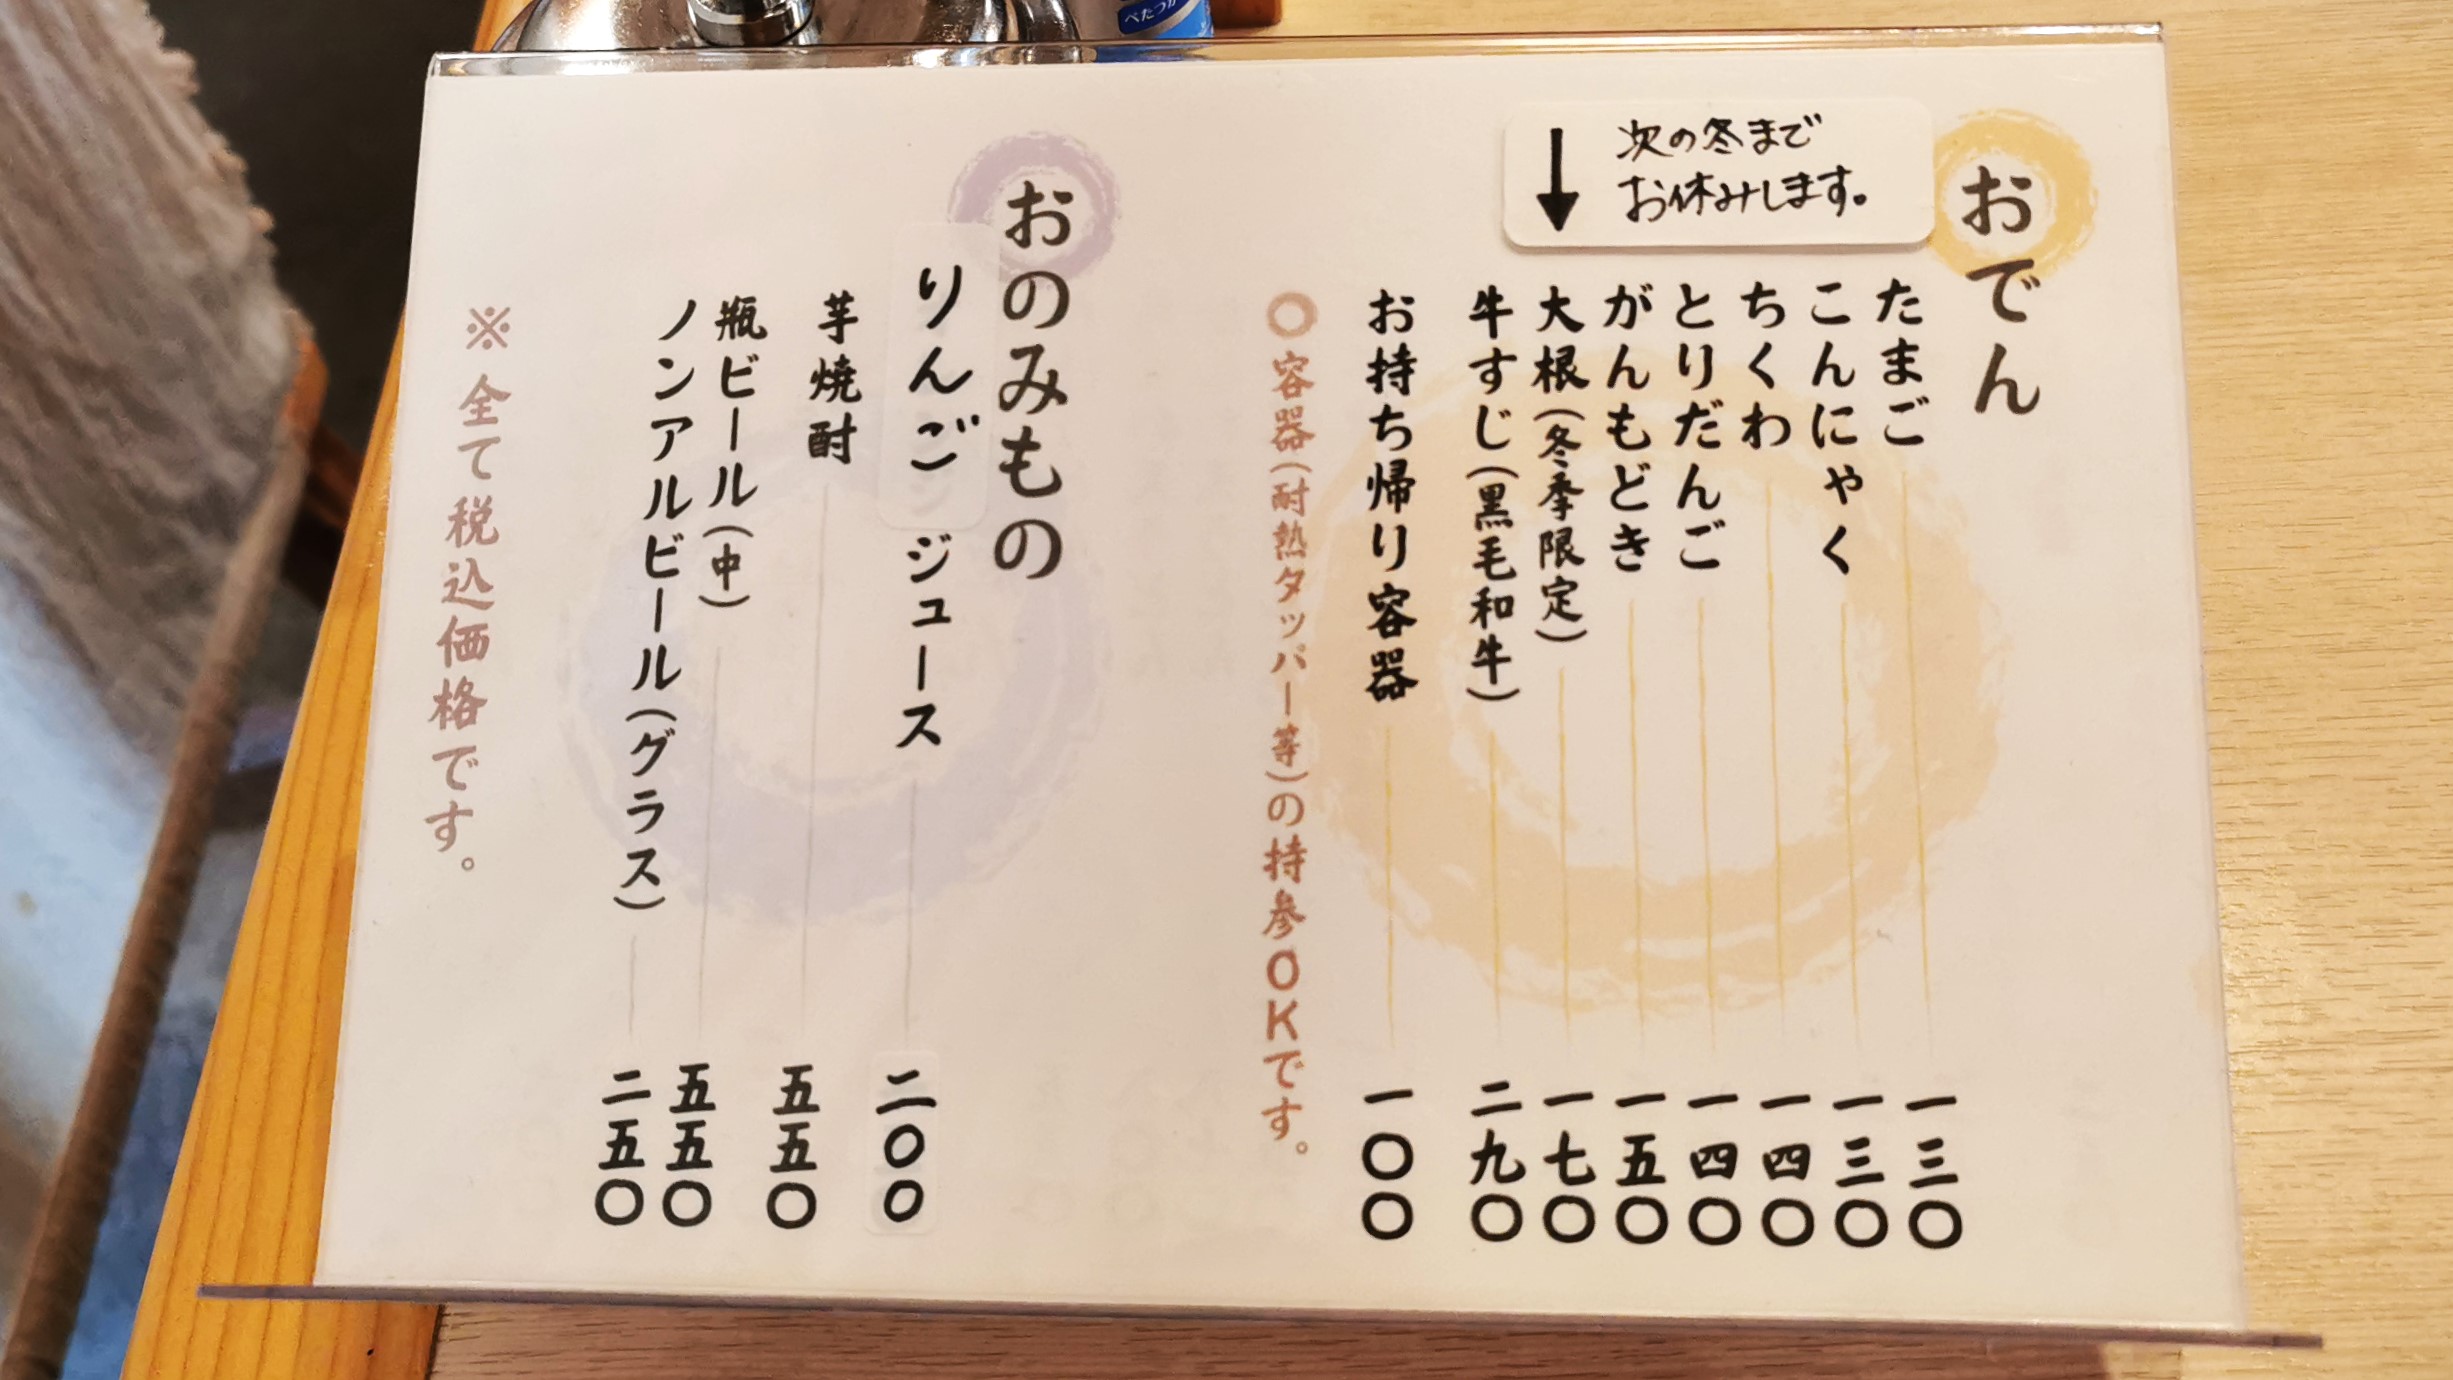 おでん
次の冬まで
お休みします。
↓
たまご 一三〇
こんにゃく 一三〇
ちくわ 一四〇
とりだんご 一四〇
がんもどき 一五〇
大根(冬季限定) 一七〇
牛すじ(黒毛和牛) 二九〇
お持ち帰り容器 一〇〇
〇容器(耐熱タッパー等)の持参OKです。
おのみもの
りんごジュース 二〇〇
芋焼酎 五五〇
瓶ビール(中) 五五〇
ノンアルビール(グラス) 二五〇
※全て税込価格です。